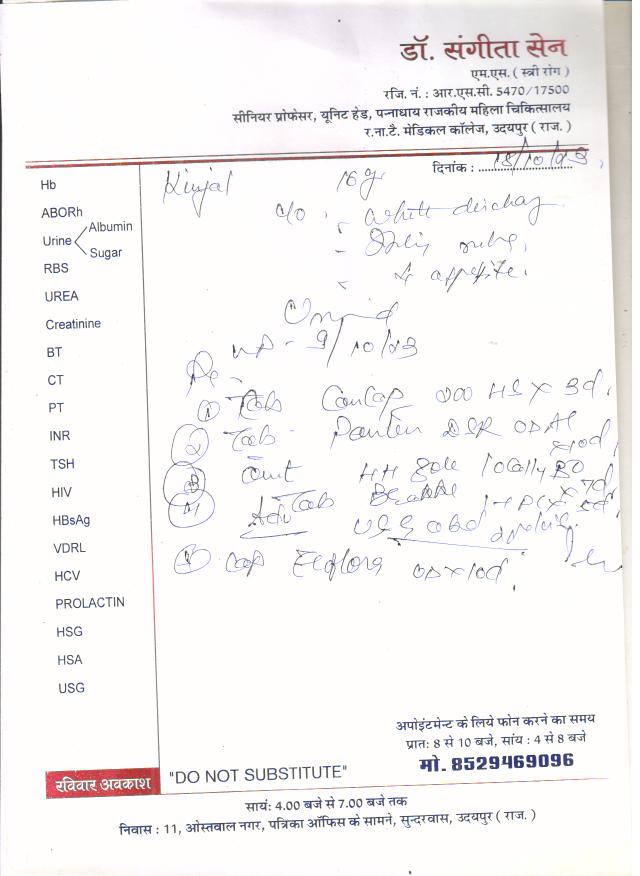 डॉ. संगीता सेन
एम.एस. ( स्त्री रोंग )
रजि. नं. : आर.एस.सी. 5470/17500
सीनियर प्रोफेसर, यूनिट हेड, पन्नाधाय राजकीय महिला चिकित्सालय
र.ना.टै. मेडिकल कॉलेज, उदयपुर ( राज. )
दिनांक : 18/10/23
Kinjal 16 yr
c/o . White discharg
- ↓ appetite.
LMP - 9/10/23
Re -
① Tab 200 HS x 3d.
② Tab - DSR OD AC x10d
③ Oint HH Sole locally BD x 7d
④ Tab
Adv USG abd
Cap OD x 10d.
Hb
ABORh
Urine Albumin
Sugar
RBS
UREA
Creatinine
BT
CT
PT
INR
TSH
HIV
HBsAg
VDRL
HCV
PROLACTIN
HSG
HSA
USG
अपोइंटमेन्ट के लिये फोन करने का समय
प्रात: 8 से 10 बजे, सांय : 4 से 8 बजे
मो. 8529469096
रविवार अवकाश "DO NOT SUBSTITUTE"
सायं: 4.00 बजे से 7.00 बजे तक
निवास : 11, ओस्तवाल नगर, पत्रिका ऑफिस के सामने, सुन्दरवास, उदयपुर ( राज. )